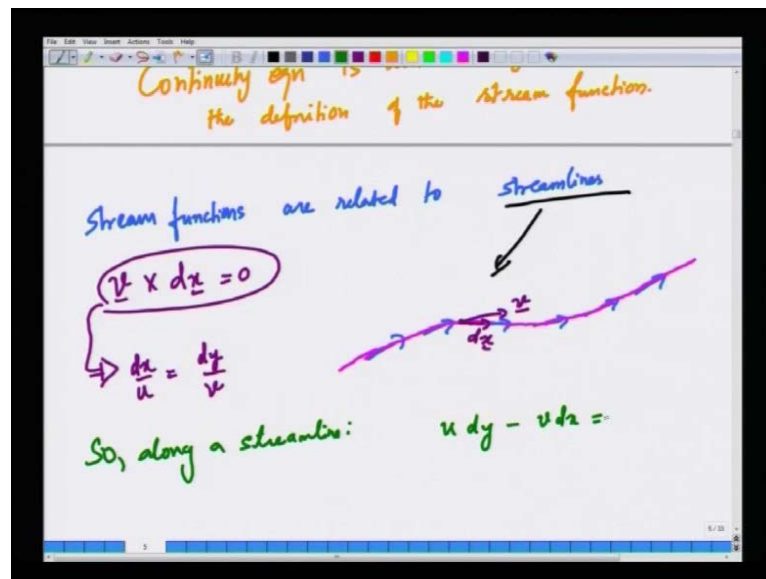 File Edit View Insert Actions Tools Help
Continuity eqn is
the definition of the stream function.
Stream functions are related to streamlines
v × dx = 0
v
dx
⇒ dx/u = dy/v
So, along a streamline: u dy - v dx =
5